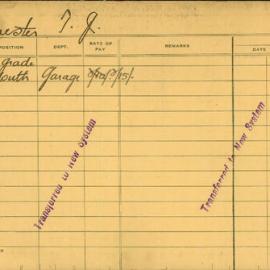 ester T. J.
POSITION DEPT. RATE OF PAY REMARKS DATE
grade
outh Garage
Transferred to New System
Transferred to New System